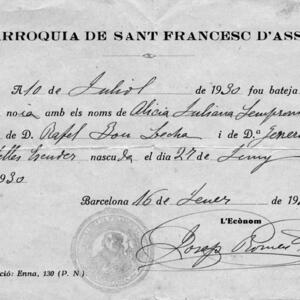 ARROQUIA DE SANT FRANCESC D'ASS
A 10 de Juliol de 1930 fou bateja
noia amb els noms de Alicia Juliana Sempron
de D. Rafel Bou Lecha i de D.ª Gener
Escuder nascuda el dia 27 de Juny
930
Barcelona 16 de Jener de 19
L'Ecònom
Josep Romeu
ció: Enna, 130 (P. N.)